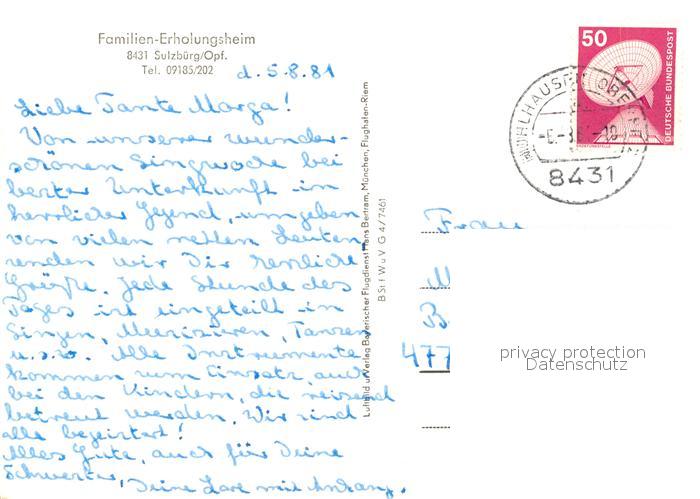 Familien-Erholungsheim
8431 Sulzbürg/Opf.
Tel. 09185/202
d. 5.8.81
Liebe Tante Marga!
Von unserer wunder-
schönen Singwoche bei
bester Unterkunft in
herrlicher Gegend, umgeben
von vielen netten Leuten
senden wir Dir herzliche
Grüße. Jede Stunde des
Tages ist eingeteilt in
Singen, Musizieren, Tanzen
u.s.w. Alle Instrumente
kommen zum Einsatz, auch
bei den Kindern, die reizend
betreut werden. Wir sind
alle begeistert!
Alles Gute, auch für Deine
Schwester, Deine Lore mit Anhang.
Luftbild u. Verlag Bayerischer Flugdienst Hans Bertram, München, Flughafen-Riem
B St I W u V G 4/7461
50
DEUTSCHE BUNDESPOST
MÜHLHAUSEN
8431
Frau
M
B
477
privacy protection
Datenschutz